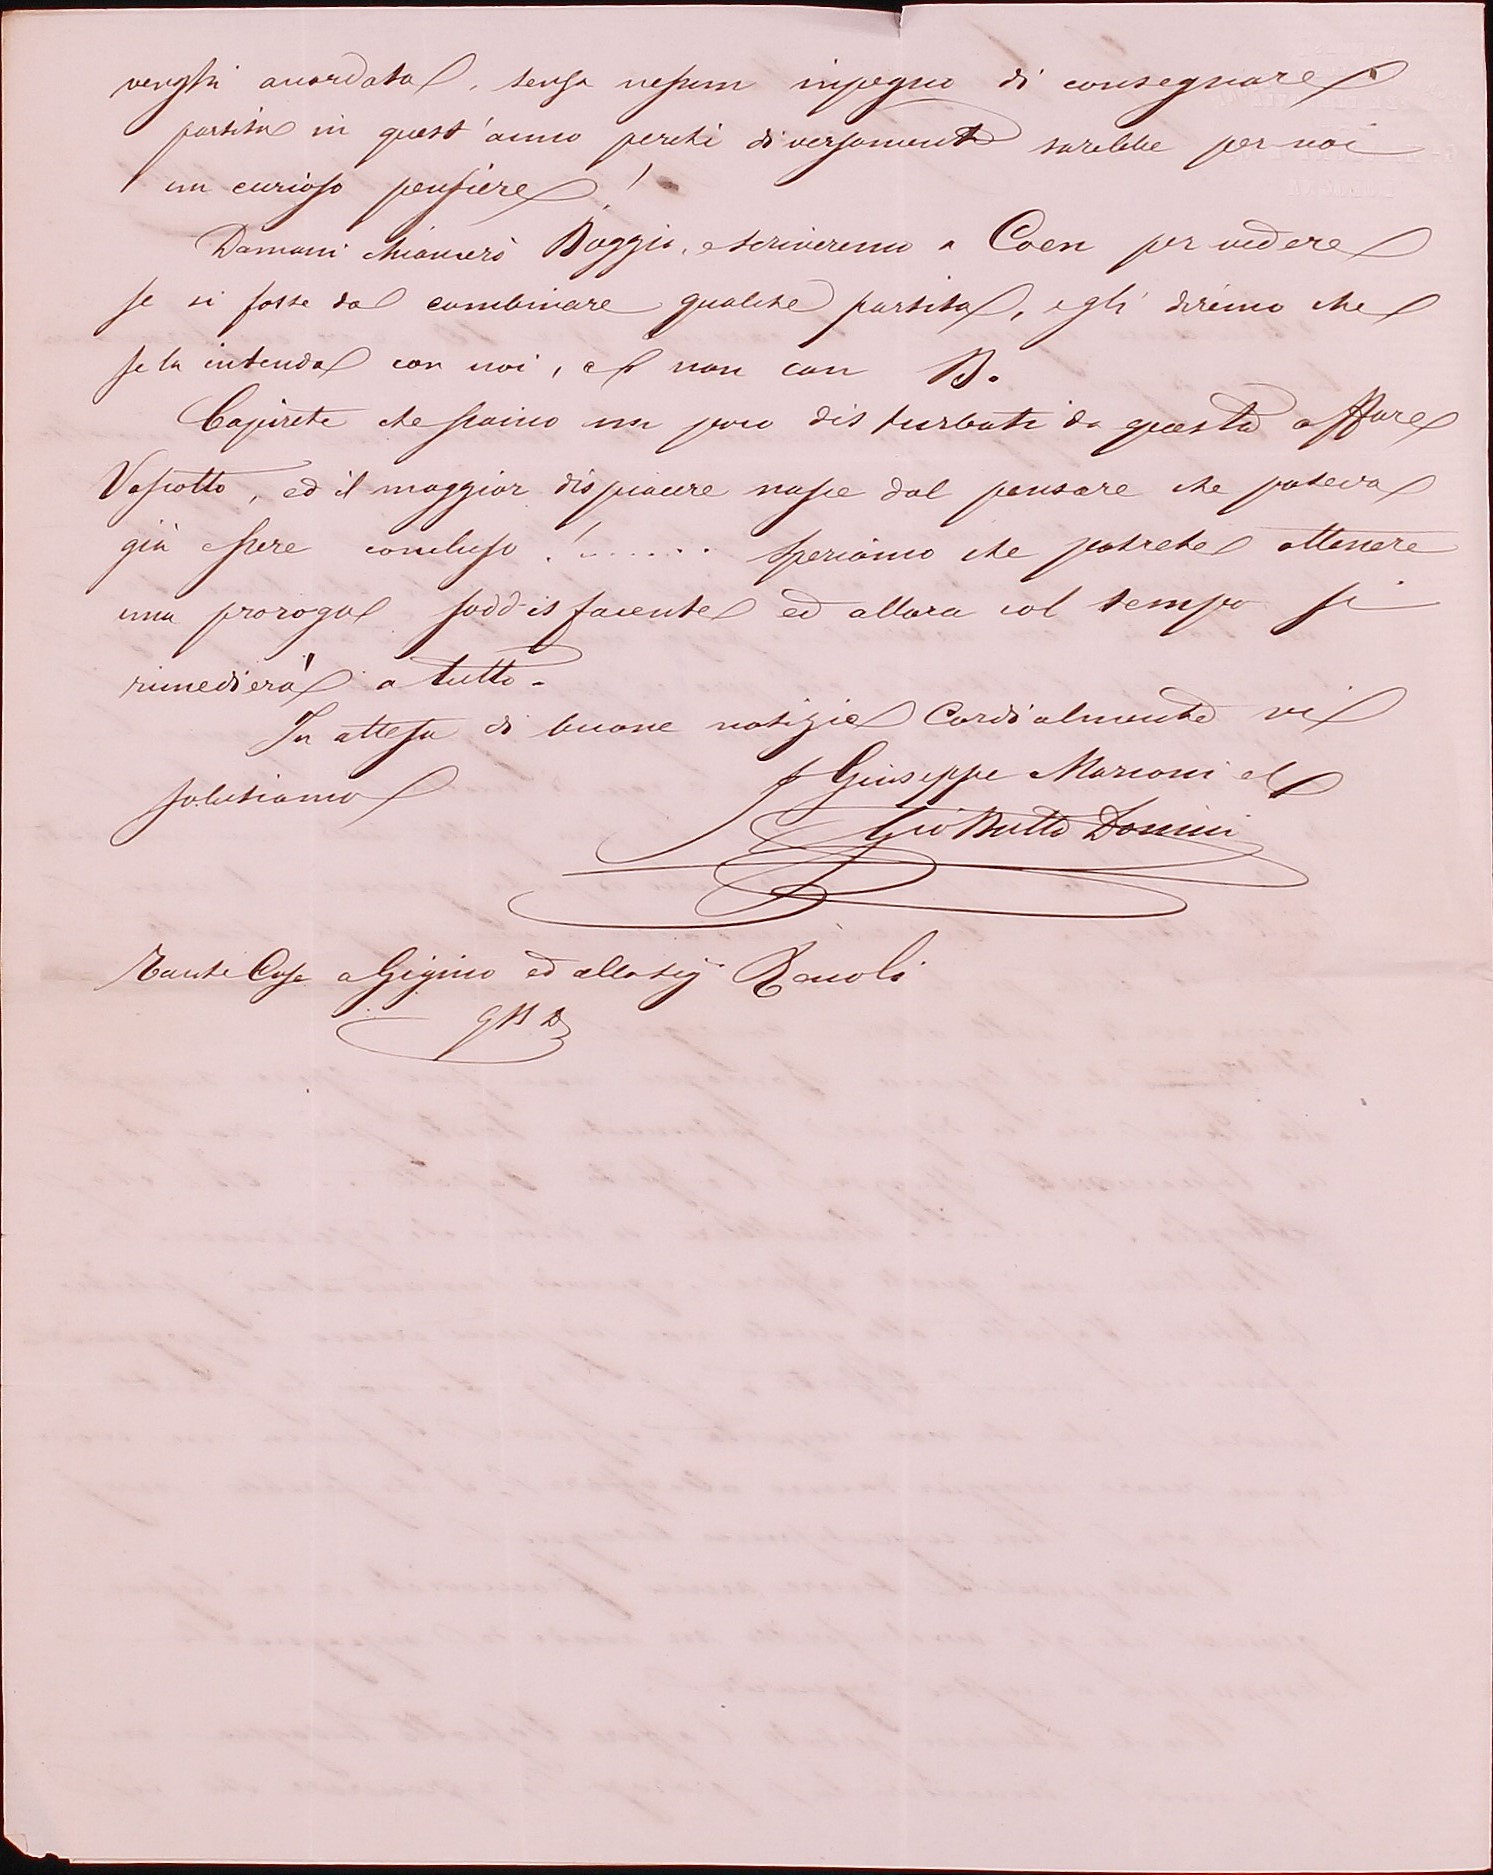 venghi accordata, senza nessun inpegno di consegnare
partita in quest'anno perchè diversamente sarebbe per noi
un curioso pensiere!
Domani chiamerò Boggio, e scriveremo a Coen per vedere
se si fosse da combinare qualche partita, e gli diremo che
se la intenda con noi, e non con B.
Capirete che siamo un poco disturbati da questo affare
Vascotto, ed il maggior dispiacere nasce dal pensare che poteva
già essere concluso!...... Speriamo che potrete ottenere
una proroga soddisfacente ed allora col tempo si
rimedierà a tutto.
In attesa di buone notizie Cordialmente vi
salutiamo
Giuseppe Marconi e
Gio Batta Donini
Tante Cose a Gigino ed alla sig.
G B. D